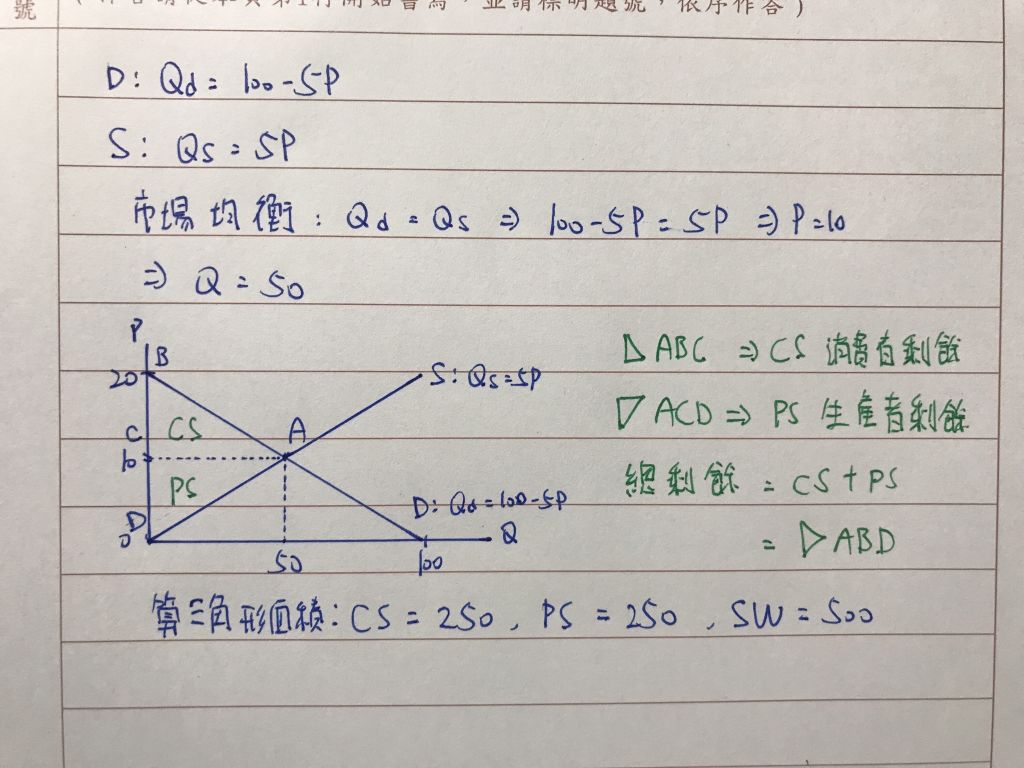 號
(作答請從本頁第1行開始書寫，並請標明題號，依序作答)
D: Qd = 100-5P
S: Qs = 5P
市場均衡: Qd = Qs ⇒ 100-5P = 5P ⇒ P=10
⇒ Q = 50
P
B
20
S: Qs=5P
△ABC ⇒ CS 消費者剩餘
C
CS
A
▽ACD ⇒ PS 生產者剩餘
10
PS
D: Qd=100-5P
總剩餘 = CS + PS
D
0
Q
= ▷ABD
50
100
算三角形面積: CS = 250, PS = 250, SW = 500